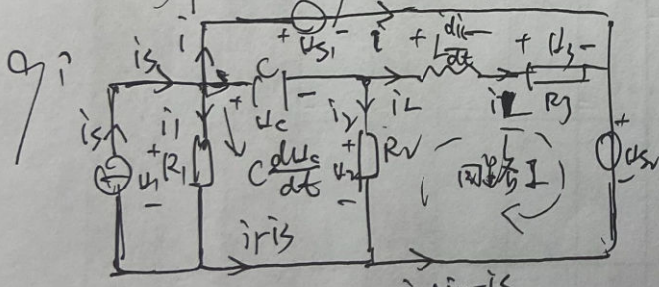 9i
i + us1 - i
is i C + L diL/dt - + u3 -
is i1 + uc - i2 iL iL R3
+ u1 - R1 C duc/dt + u2 - R2 回路I + us2 -
i1-is